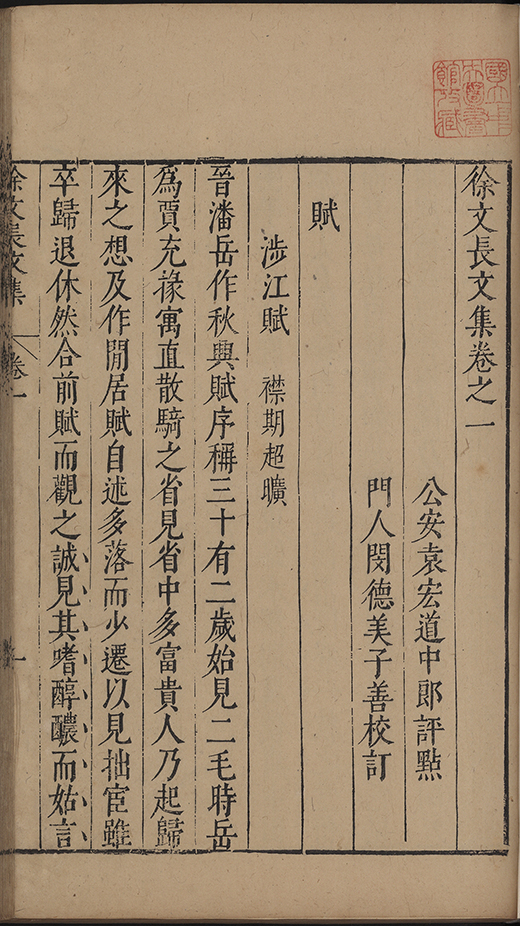 國立中央圖書館收藏
徐文長文集卷之一
公安袁宏道中郎評點
門人閔德美子善校訂
賦
涉江賦 襟期超曠
晉潘岳作秋興賦序稱三十有二歲始見二毛時岳
為賈充掾寓直散騎之省見省中多富貴人乃起歸
來之想及作閒居賦自述多落而少遷以見拙宦雖
卒歸退休然合前賦而觀之誠見其嗜醇醲而姑言
徐文長文集 卷一 一